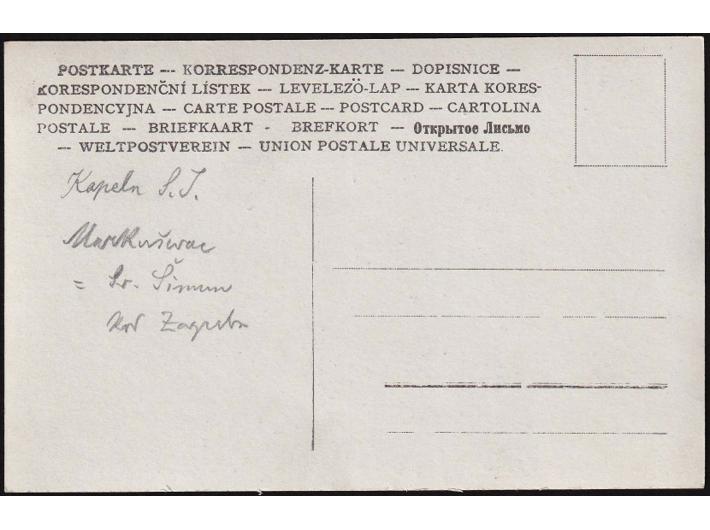 POSTKARTE -- KORRESPONDENZ-KARTE -- DOPISNICE --
KORESPONDENČNÍ LÍSTEK -- LEVELEZÖ-LAP -- KARTA KORES-
PONDENCYJNA -- CARTE POSTALE -- POSTCARD -- CARTOLINA
POSTALE -- BRIEFKAART - BREFKORT -- Открытое Лисьмо
-- WELTPOSTVEREIN -- UNION POSTALE UNIVERSALE.
Kapeln S. J.
Markuševac
= Sv. Šimun
kod Zagreba